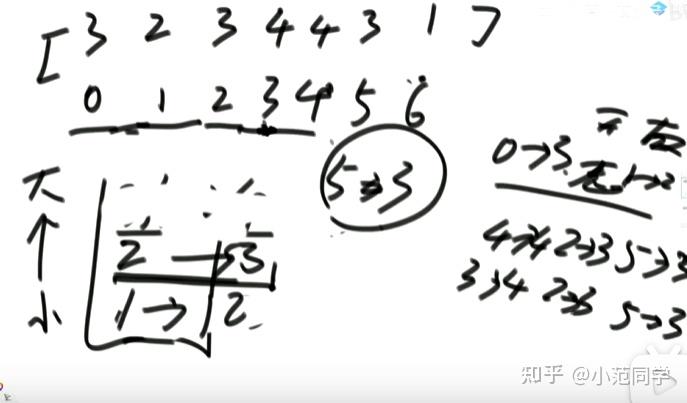 [ 3 2 3 4 4 3 1 ]
0 1 2 3 4 5 6
大
小
2 → 3
1 → 2
5 → 3
0 → 3
1 → 2
4 → 4 2 → 3 5 → 3
3 → 4 2 → 3 5 → 3
知乎 @小范同学